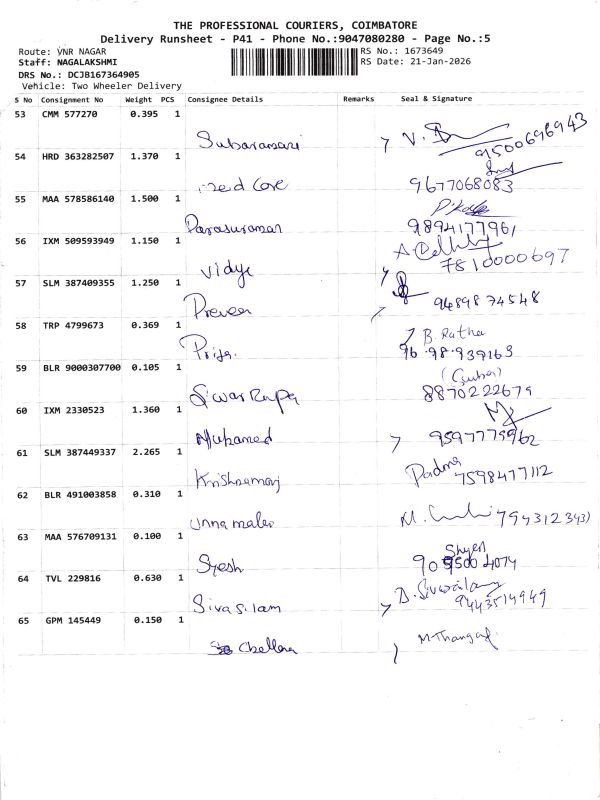 THE PROFESSIONAL COURIERS, COIMBATORE
Delivery Runsheet - P41 - Phone No.:9047080280 - Page No.:5
Route: VNR NAGAR
Staff: NAGALAKSHMI
DRS No.: DCJB167364905
Vehicle: Two Wheeler Delivery
RS No.: 1673649
RS Date: 21-Jan-2026
S No Consignment No Weight PCS Consignee Details Remarks Seal & Signature
53 CMM 577270 0.395 1
9500696943
54 HRD 363282507 1.370 1
9677068083
55 MAA 578586140 1.500 1
Parasuraman 9894177961
56 IXM 509593949 1.150 1
Vidya 7810000697
57 SLM 387409355 1.250 1
Praveen 9489874548
58 TRP 4799673 0.369 1
B. Ratha
Priya. 96 98 939163
59 BLR 9000307700 0.105 1
8870222679
60 IXM 2330523 1.360 1
Muhamed 9597779962
61 SLM 387449337 2.265 1
Padma
Krishnamoj 7598477112
62 BLR 491003858 0.310 1
Unnamalai
63 MAA 576709131 0.100 1
64 TVL 229816 0.630 1
Sivasilam 9443514949
65 GPM 145449 0.150 1
Chellam M.Thangaj